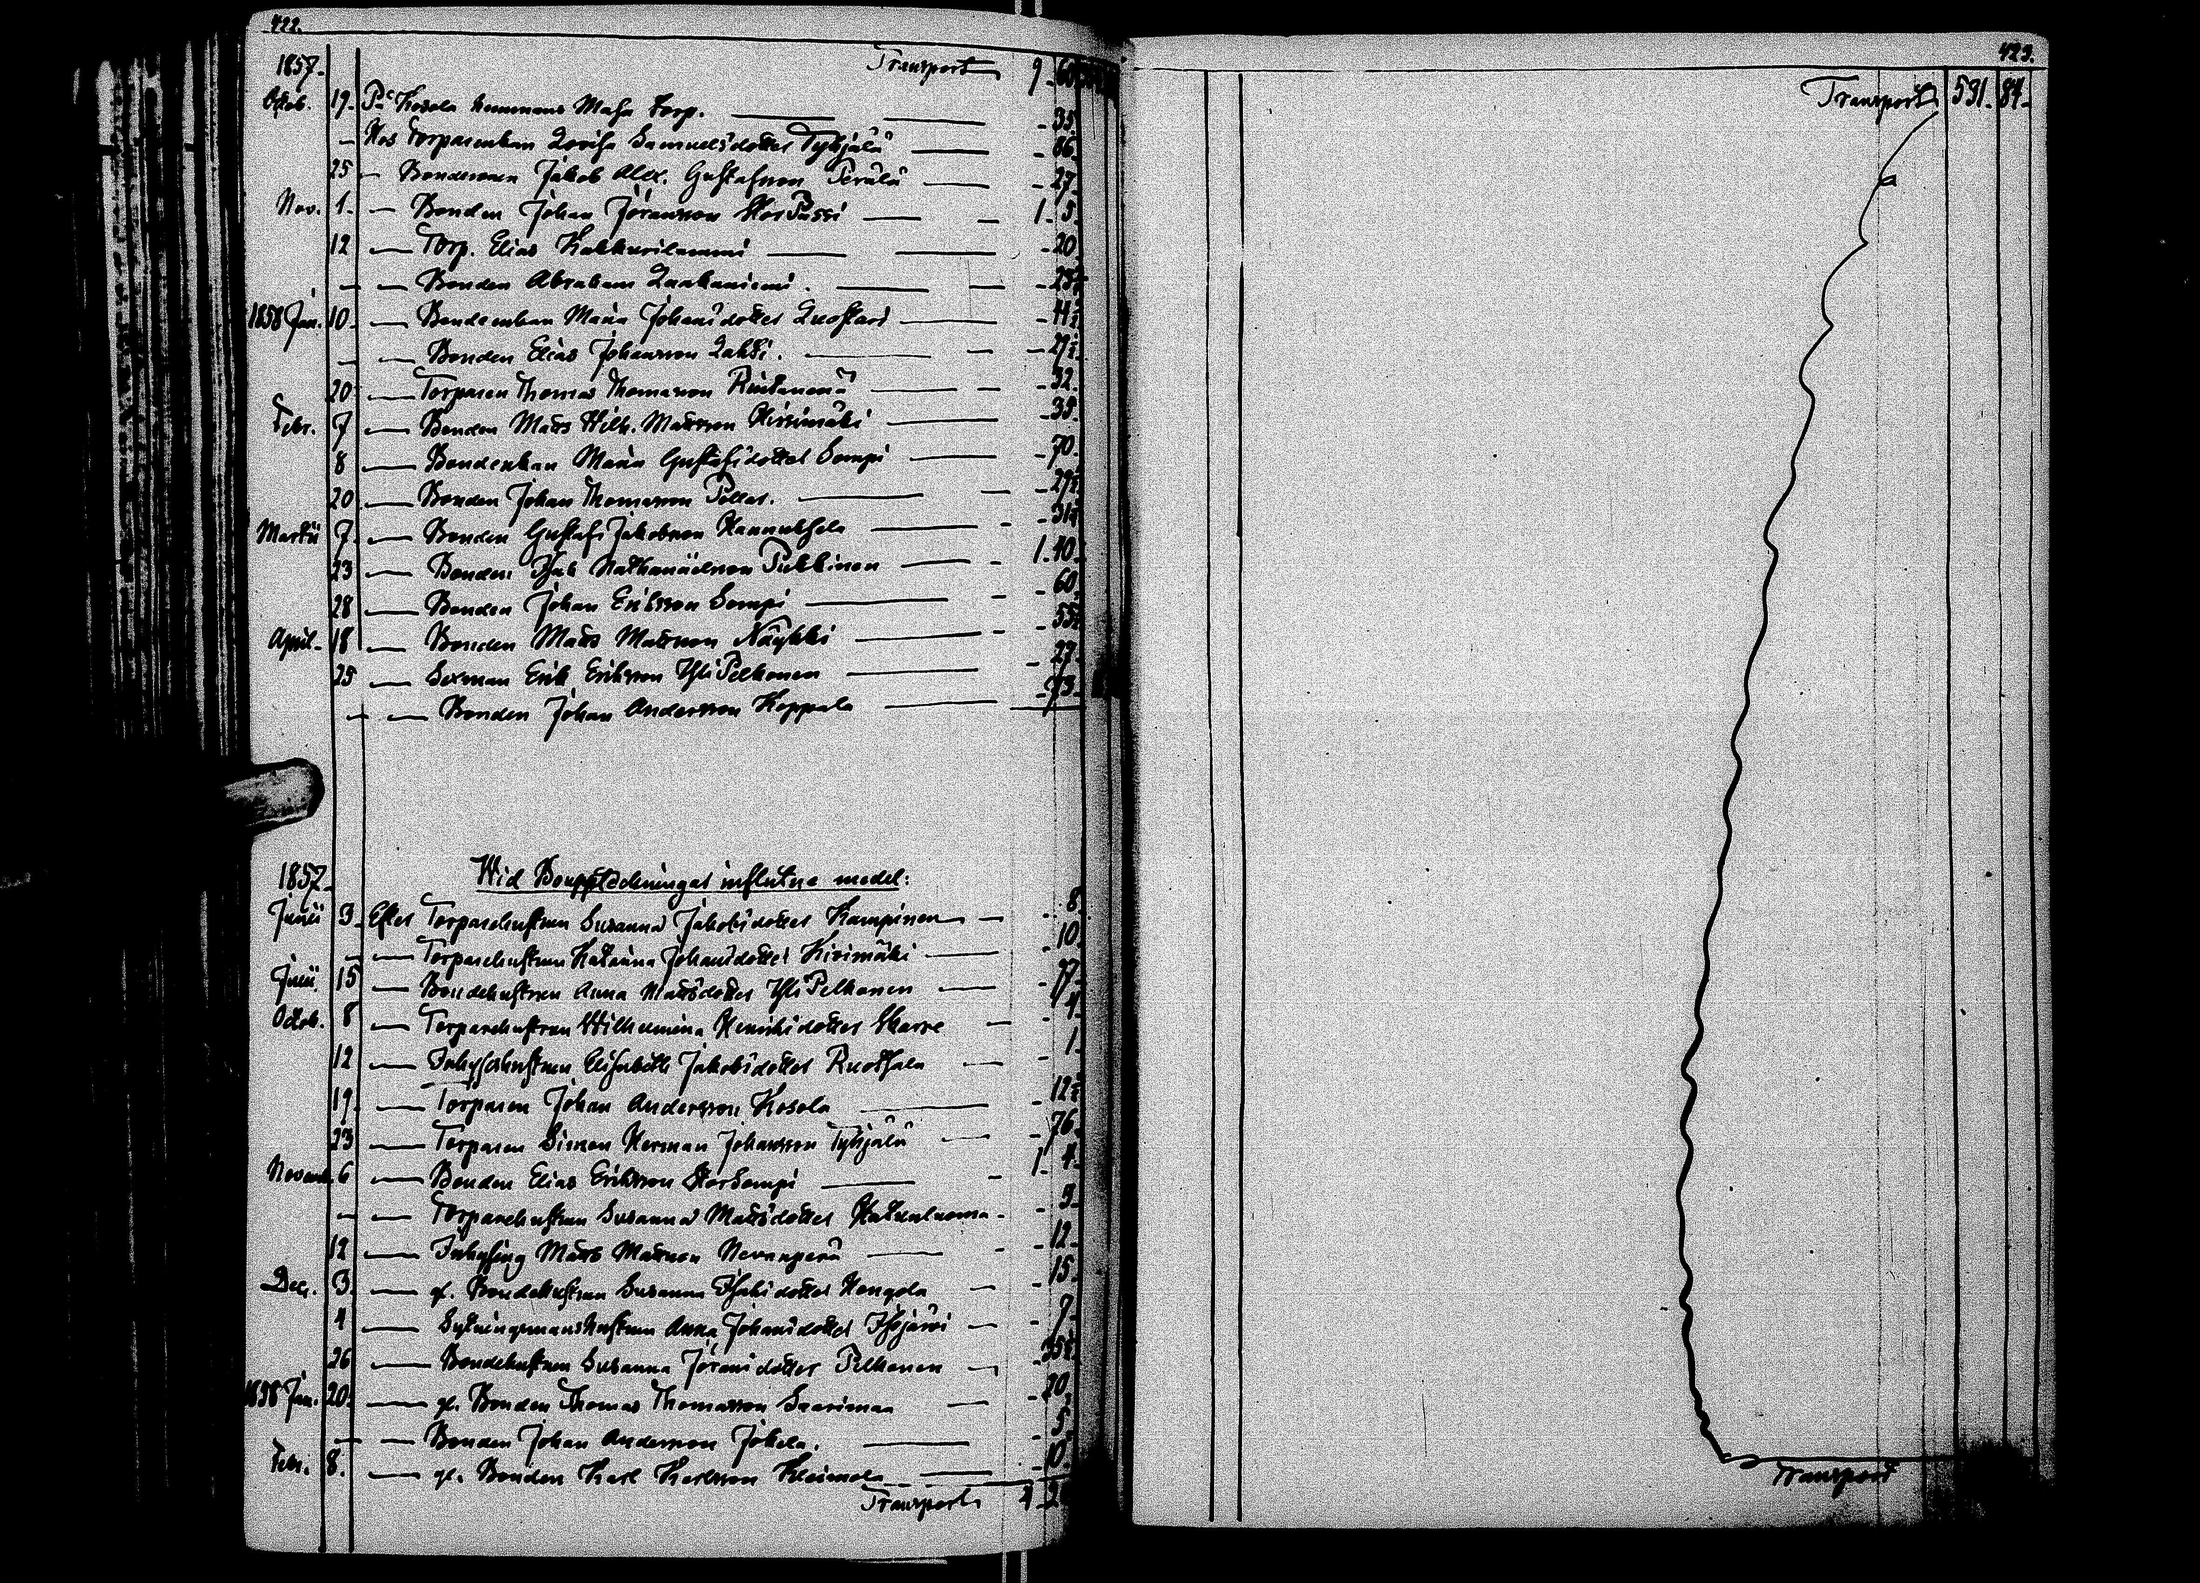 422.
1857. Transport 9 60
Octob. 19. På Kosola hemmans Maha torp. 35.
Hos Torparenkan Lovisa Samuelsdotter Tyhjälä 86.
25 Bondesonen Jakob Alex. Gustafsson Perälä 27.
Nov. 1. Bonden Johan Jöransson StorPassi 1. 5.
12 Torp. Elias Kakkurilammi 20
Bonden Abraham Laakaniemi.
1858 Jan. 10. Bondenkan Maria Johansdotter Luostari
Bonden Elias Johansson Lahti.
20 Torparen Thomas Thomasson Rintamaa 32.
Febr. 7 Bonden Matts Wilh. Mattsson Hirsimäki 35.
8 Bondenkan Maria Gustafsdotter Sompi 70.
20 Bonden Johan Thomasson Pollari.
Martii 7. Bonden Gustaf Jakobsson Hannuksela
23 Bonden Isak Nathanaelsson Pukkinen 1. 40.
28 Bonden Johan Eriksson Sompi 60.
April 18 Bonden Matts Mattsson Näykki
25 Sexman Erik Eriksson YliPelkonen 27.
Bonden Johan Andersson Koppala 73.
1857. Wid Bouppteckningar influtne medel:
Junii 9. Efter Torparehustrun Susanna Jakobsdotter Kampinen 8.
Torparehustrun Katarina Johansdotter Kivimäki 10.
Junii 15 Bondehustrun Anna Mattsdotter YliPelkonen 77.
Octob. 8 Torparehustrun Wilhelmina Henriksdotter Skarre 4.
12 Inhyseshustrun Elisabeth Jakobsdotter Ruotsala 1.
19. Torparen Johan Andersson Kosola
23 Torparen Simon Herman Johansson Tyhjälä 76.
Novemb. 6 Bonden Elias Eriksson StorSompi 1. 4.
Torparehustrun Susanna Mattsdotter 9.
12 Inhysing Matts Mattsson Nevanperä 12.
Dec. 3. gl. Bondehustrun Susanna Isaksdotter Hangola 15.
4 Sytningsmanshustrun Anna Johansdotter Isojärvi 7.
26 Bondehustrun Susanna Jöransdotter Pelkonen
1858 Jan. 20. gl. Bonden Thomas Thomasson Saarimaa 20.
Bonden Johan Andersson Jokela. 5.
Febr. 8. gl. Bonden Karl Karlsson Kleimola 10.
Transport 4 2
423.
Transport 591. 84.
Transport